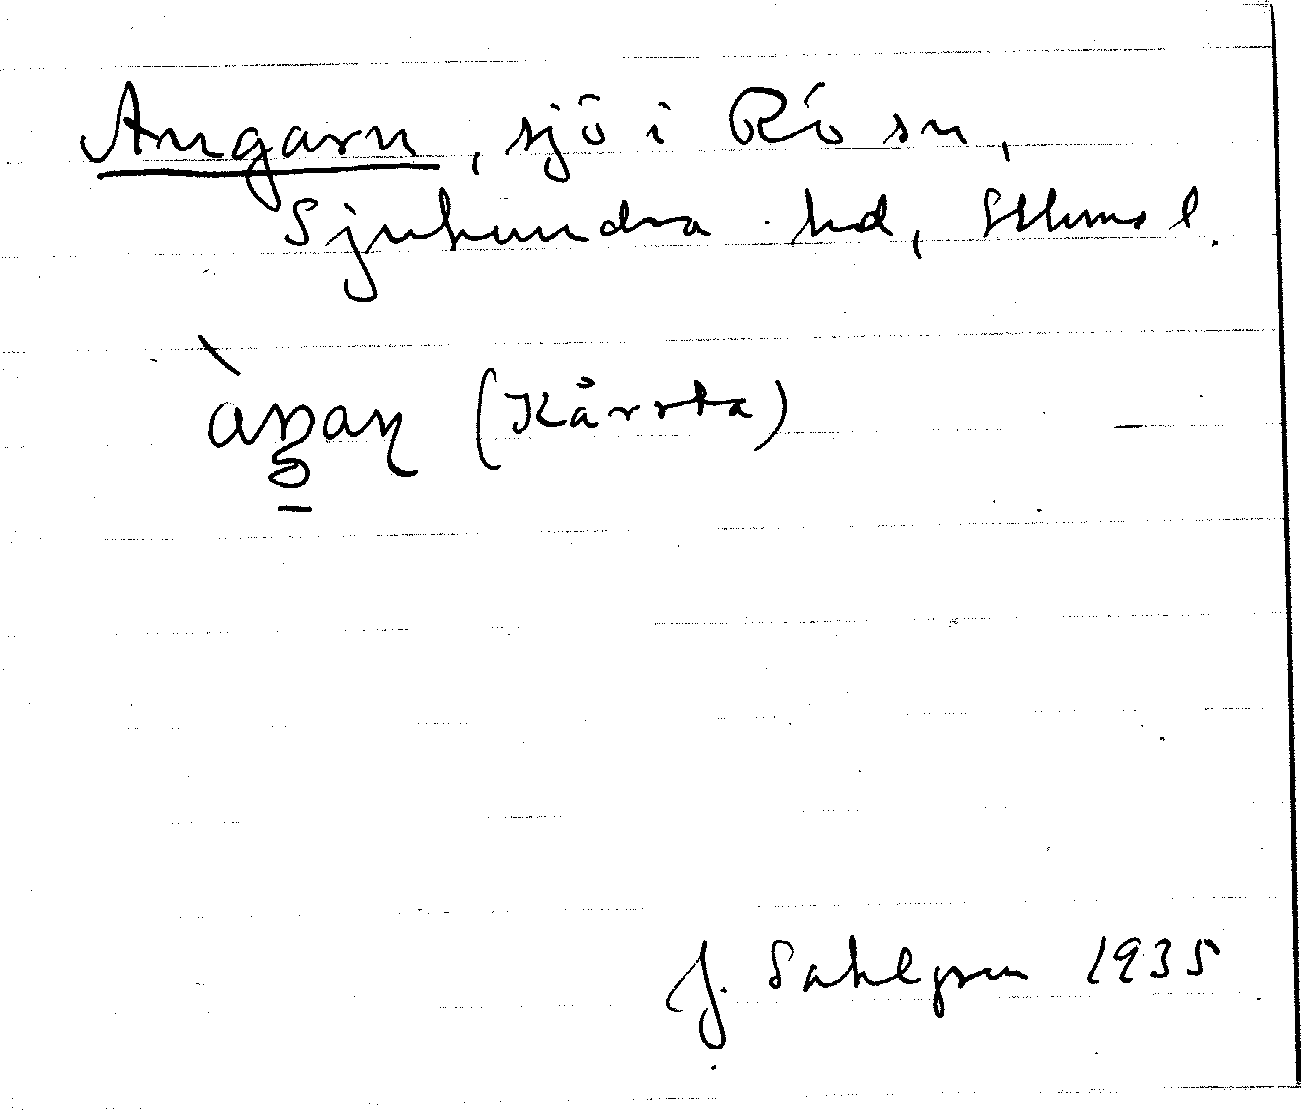 Angarn, sjö i Rö sn,
Sjuhundra hd, Sthms l.
(Kårsta)
J. Sahlgren 1935